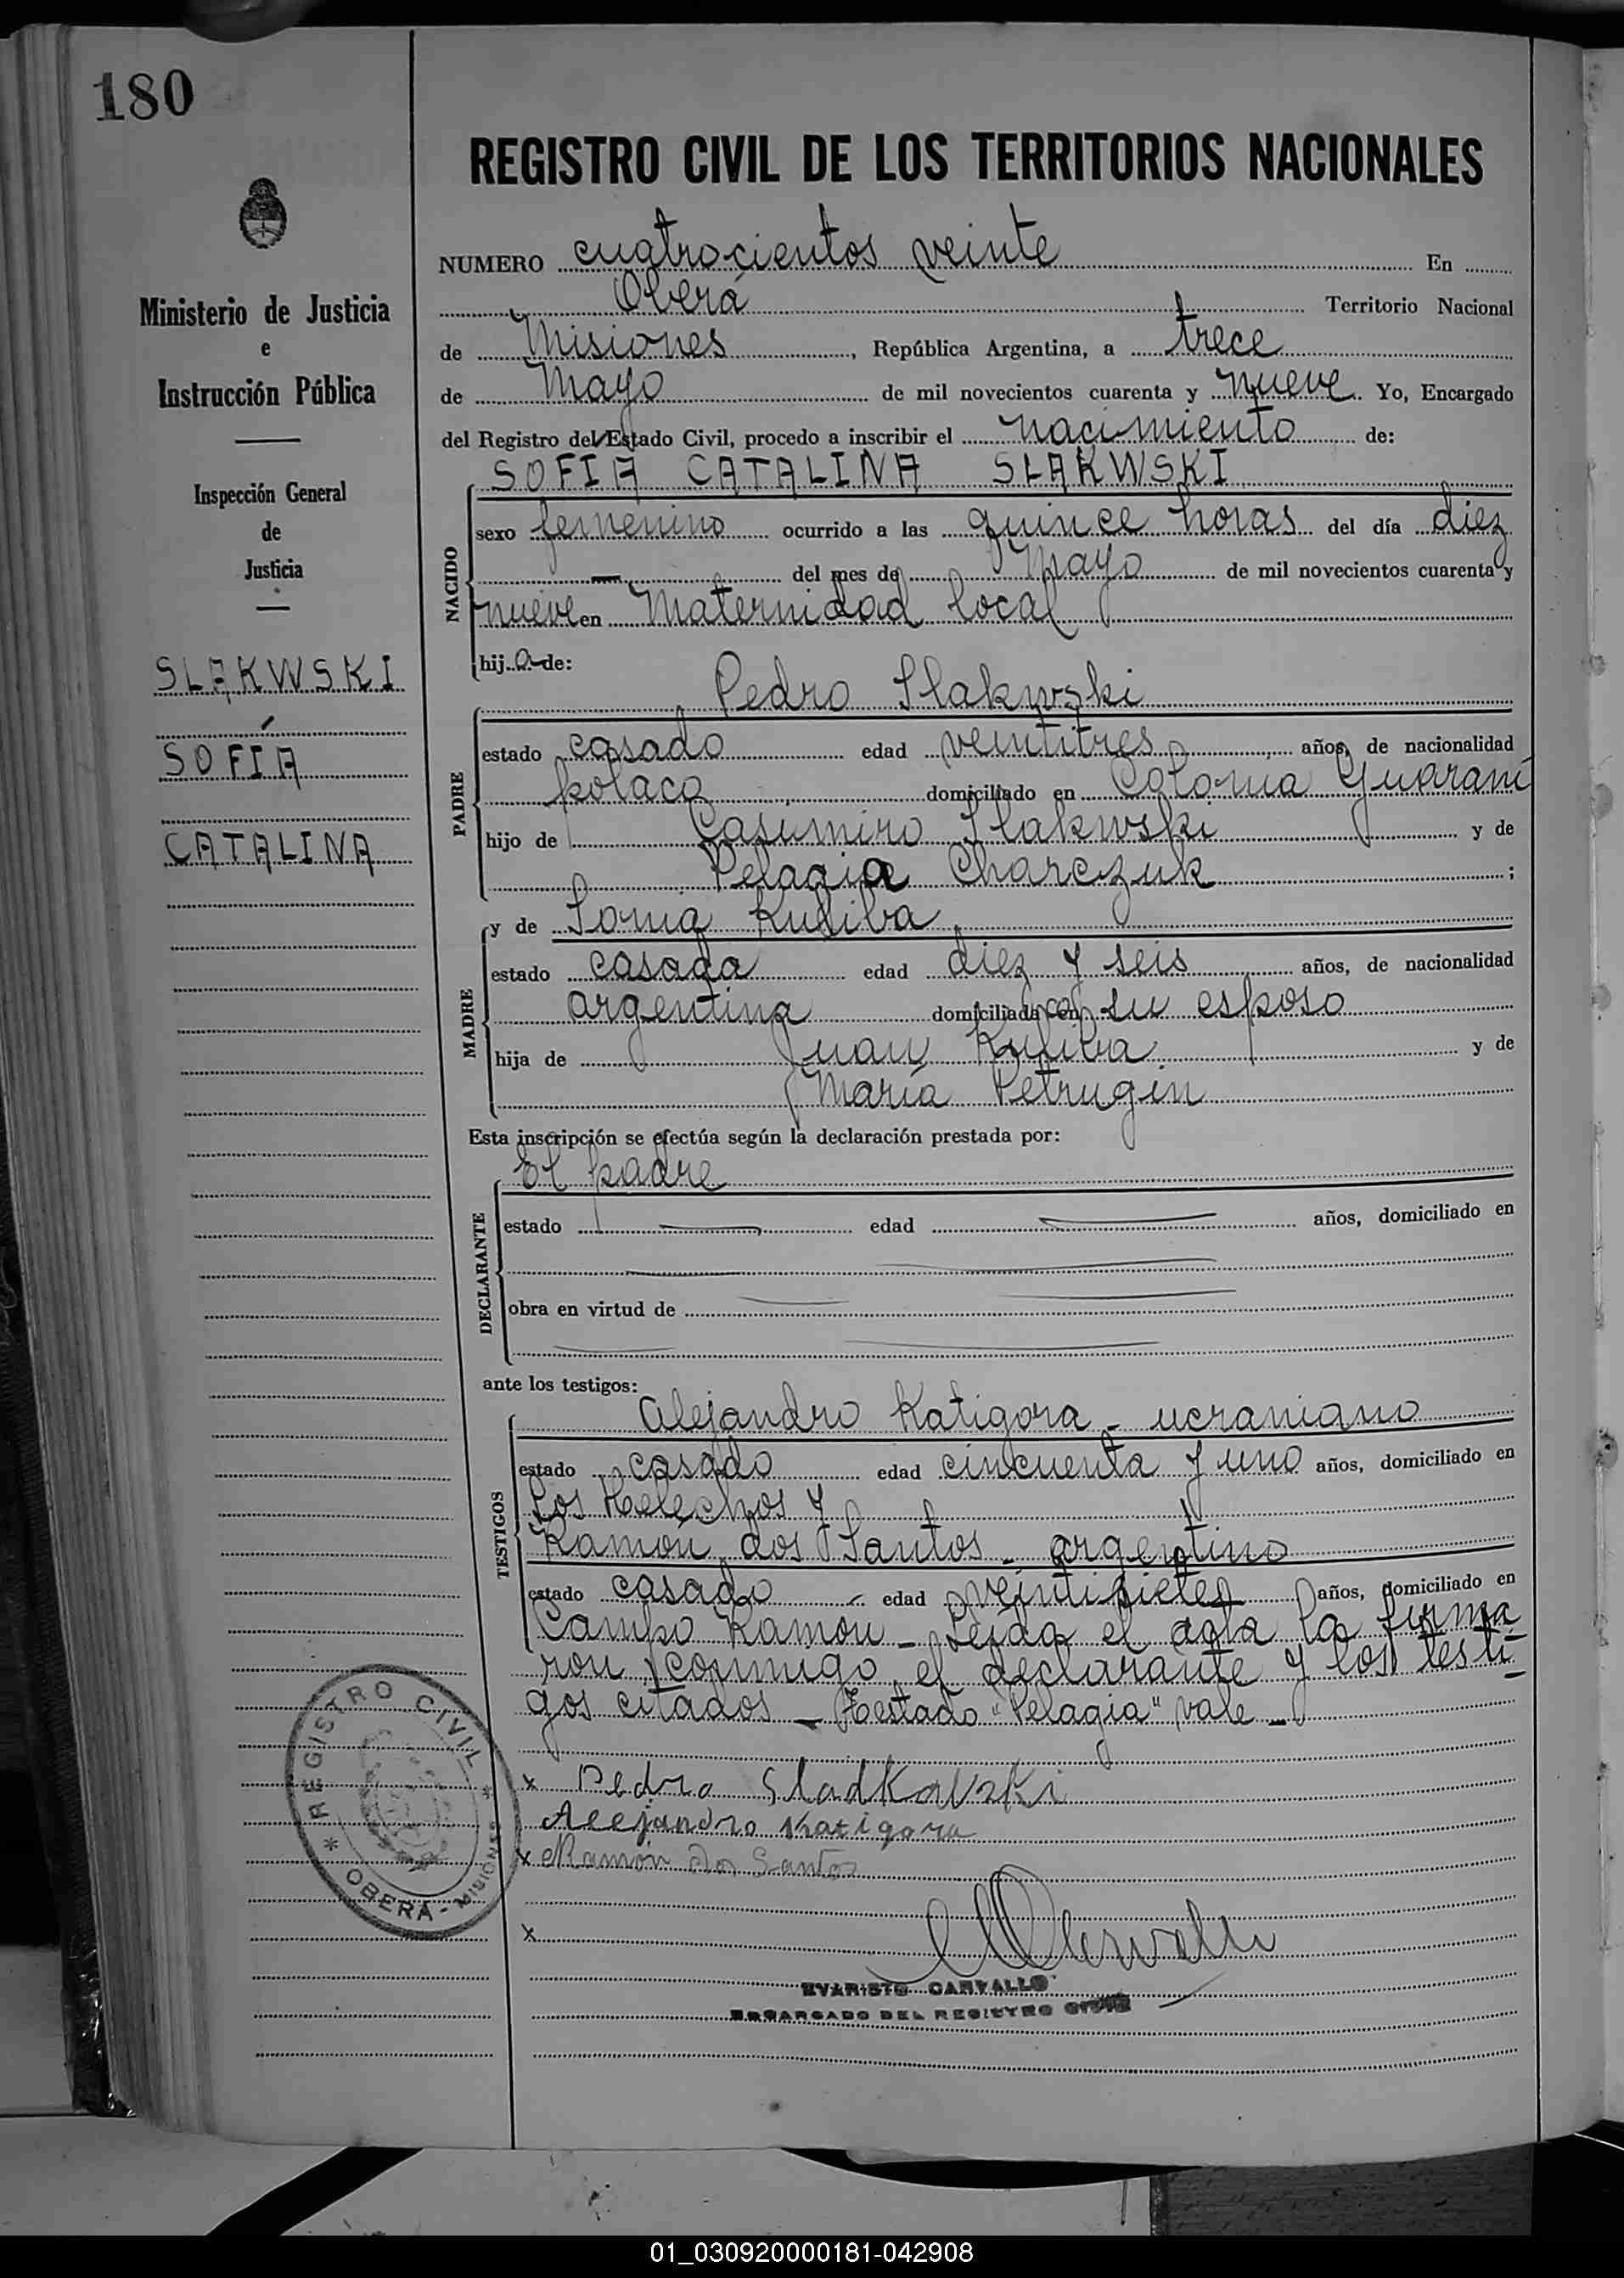 180
REGISTRO CIVIL DE LOS TERRITORIOS NACIONALES
NUMERO cuatrocientos veinte En
Oberá Territorio Nacional
de Misiones, República Argentina, a trece
de Mayo de mil novecientos cuarenta y nueve. Yo, Encargado
del Registro del Estado Civil, procedo a inscribir el nacimiento de:
SOFIA CATALINA SLAKWSKI
sexo femenino ocurrido a las quince horas del día diez
— del mes de Mayo de mil novecientos cuarenta y
nueve en Maternidad local
hij a de:
NACIDO
Pedro Slakwski
estado casado edad veintitres años, de nacionalidad
polaca domiciliado en Colonia Guaraní
hijo de Casimiro Slakwski y de
Pelagia Charczuk ;
PADRE
y de Sonia Kuliba
estado casada edad diez y seis años, de nacionalidad
argentina domiciliada con su esposo
hija de Juan Kuliba y de
María Petrugin
MADRE
Esta inscripción se efectúa según la declaración prestada por:
El padre
estado — edad — años, domiciliado en
obra en virtud de
DECLARANTE
ante los testigos:
Alejandro Katigora - ucraniano
estado casado edad cincuenta y uno años, domiciliado en
Los Helechos y
Ramón dos Santos - argentino
estado casado edad veintisiete años, domiciliado en
TESTIGOS
Campo Ramón - Leída el acta la firma
ron conmigo el declarante y los testi-
gos citados - Testado "Pelagia" vale -
x Pedro Sladkowski
Alejandro Katigora
x Ramón Dos Santos
x
EVARISTO CARVALLO
ENCARGADO DEL REGISTRO CIVIL
Ministerio de Justicia
e
Instrucción Pública
Inspección General
de
Justicia
SLAKWSKI
SOFÍA
CATALINA
* REGISTRO CIVIL * OBERÁ - MISIONES
01_030920000181-042908